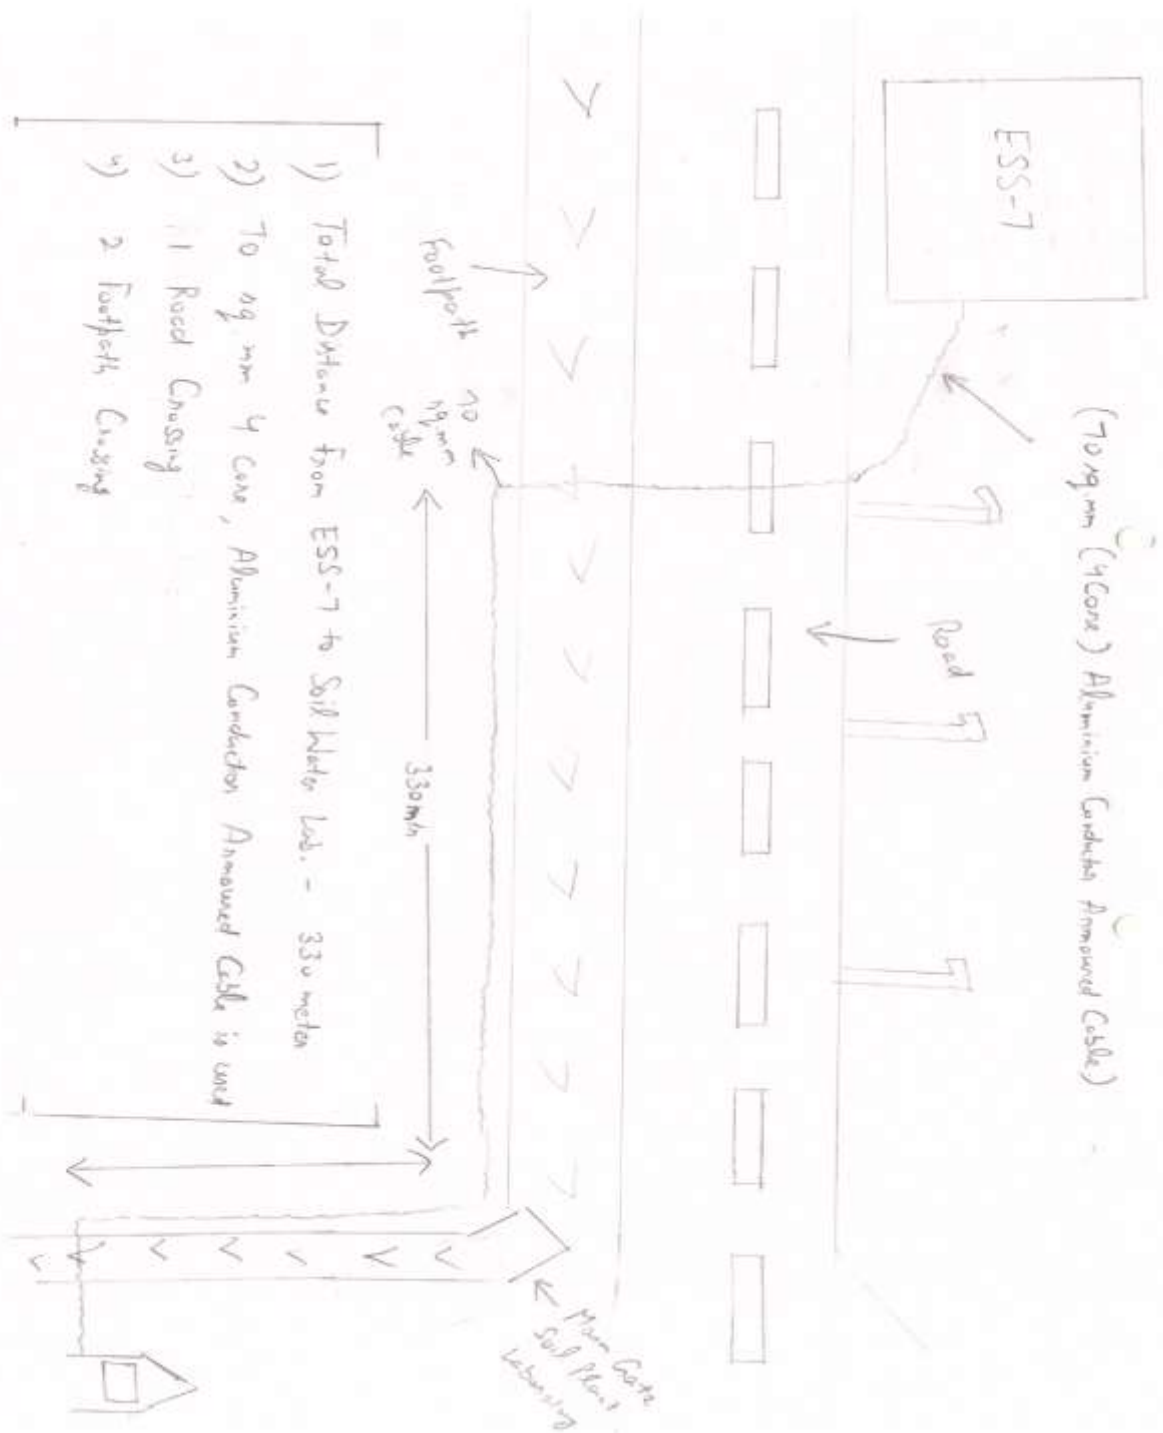 ESS-7
(70 sq.mm (4 Core) Aluminium Conductor Armoured Cable)
Road
Footpath
70
sq.mm
Cable
330 mtr
Main Gate
Soil Plant
1) Total Distance from ESS-7 to Soil Water Lab. - 330 meter
2) 70 sq mm 4 Core, Aluminium Conductor Armoured Cable is used
3) 1 Road Crossing
4) 2 Footpath Crossing